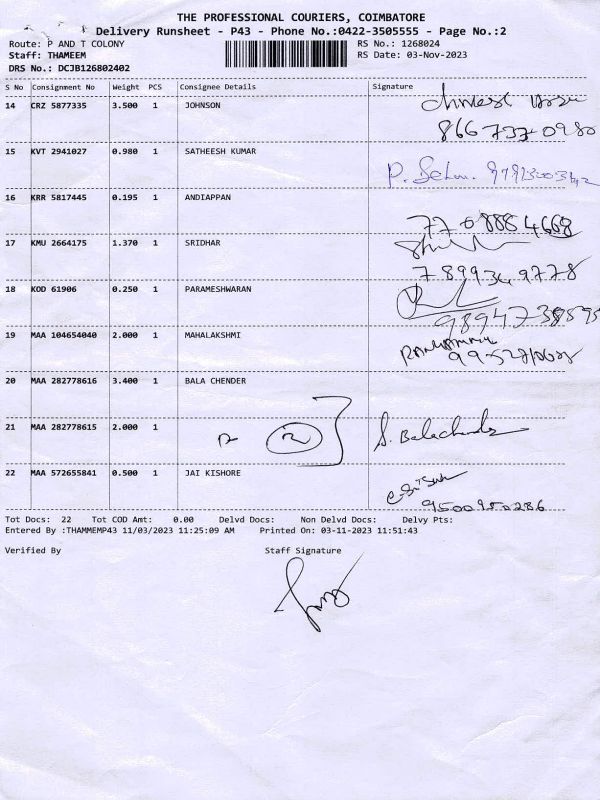 THE PROFESSIONAL COURIERS, COIMBATORE
Delivery Runsheet - P43 - Phone No.:0422-3505555 - Page No.:2
Route: P AND T COLONY
RS No.: 1268024
Staff: THAMEEM
RS Date: 03-Nov-2023
DRS No.: DCJB126802402
S No Consignment No Weight PCS Consignee Details Signature
14 CRZ 5877335 3.500 1 JOHNSON
866 733 0980
15 KVT 2941027 0.980 1 SATHEESH KUMAR
16 KRR 5817445 0.195 1 ANDIAPPAN
77 08884668
17 KMU 2664175 1.370 1 SRIDHAR
7 89934 9778
18 KOD 61906 0.250 1 PARAMESHWARAN
9894738595
19 MAA 104654040 2.000 1 MAHALAKSHMI
20 MAA 282778616 3.400 1 BALA CHENDER
21 MAA 282778615 2.000 1 2 S. Balachander
22 MAA 572655841 0.500 1 JAI KISHORE
9500950286
Tot Docs: 22 Tot COD Amt: 0.00 Delvd Docs: Non Delvd Docs: Delvy Pts:
Entered By :THAMMEMP43 11/03/2023 11:25:09 AM Printed On: 03-11-2023 11:51:43
Verified By Staff Signature